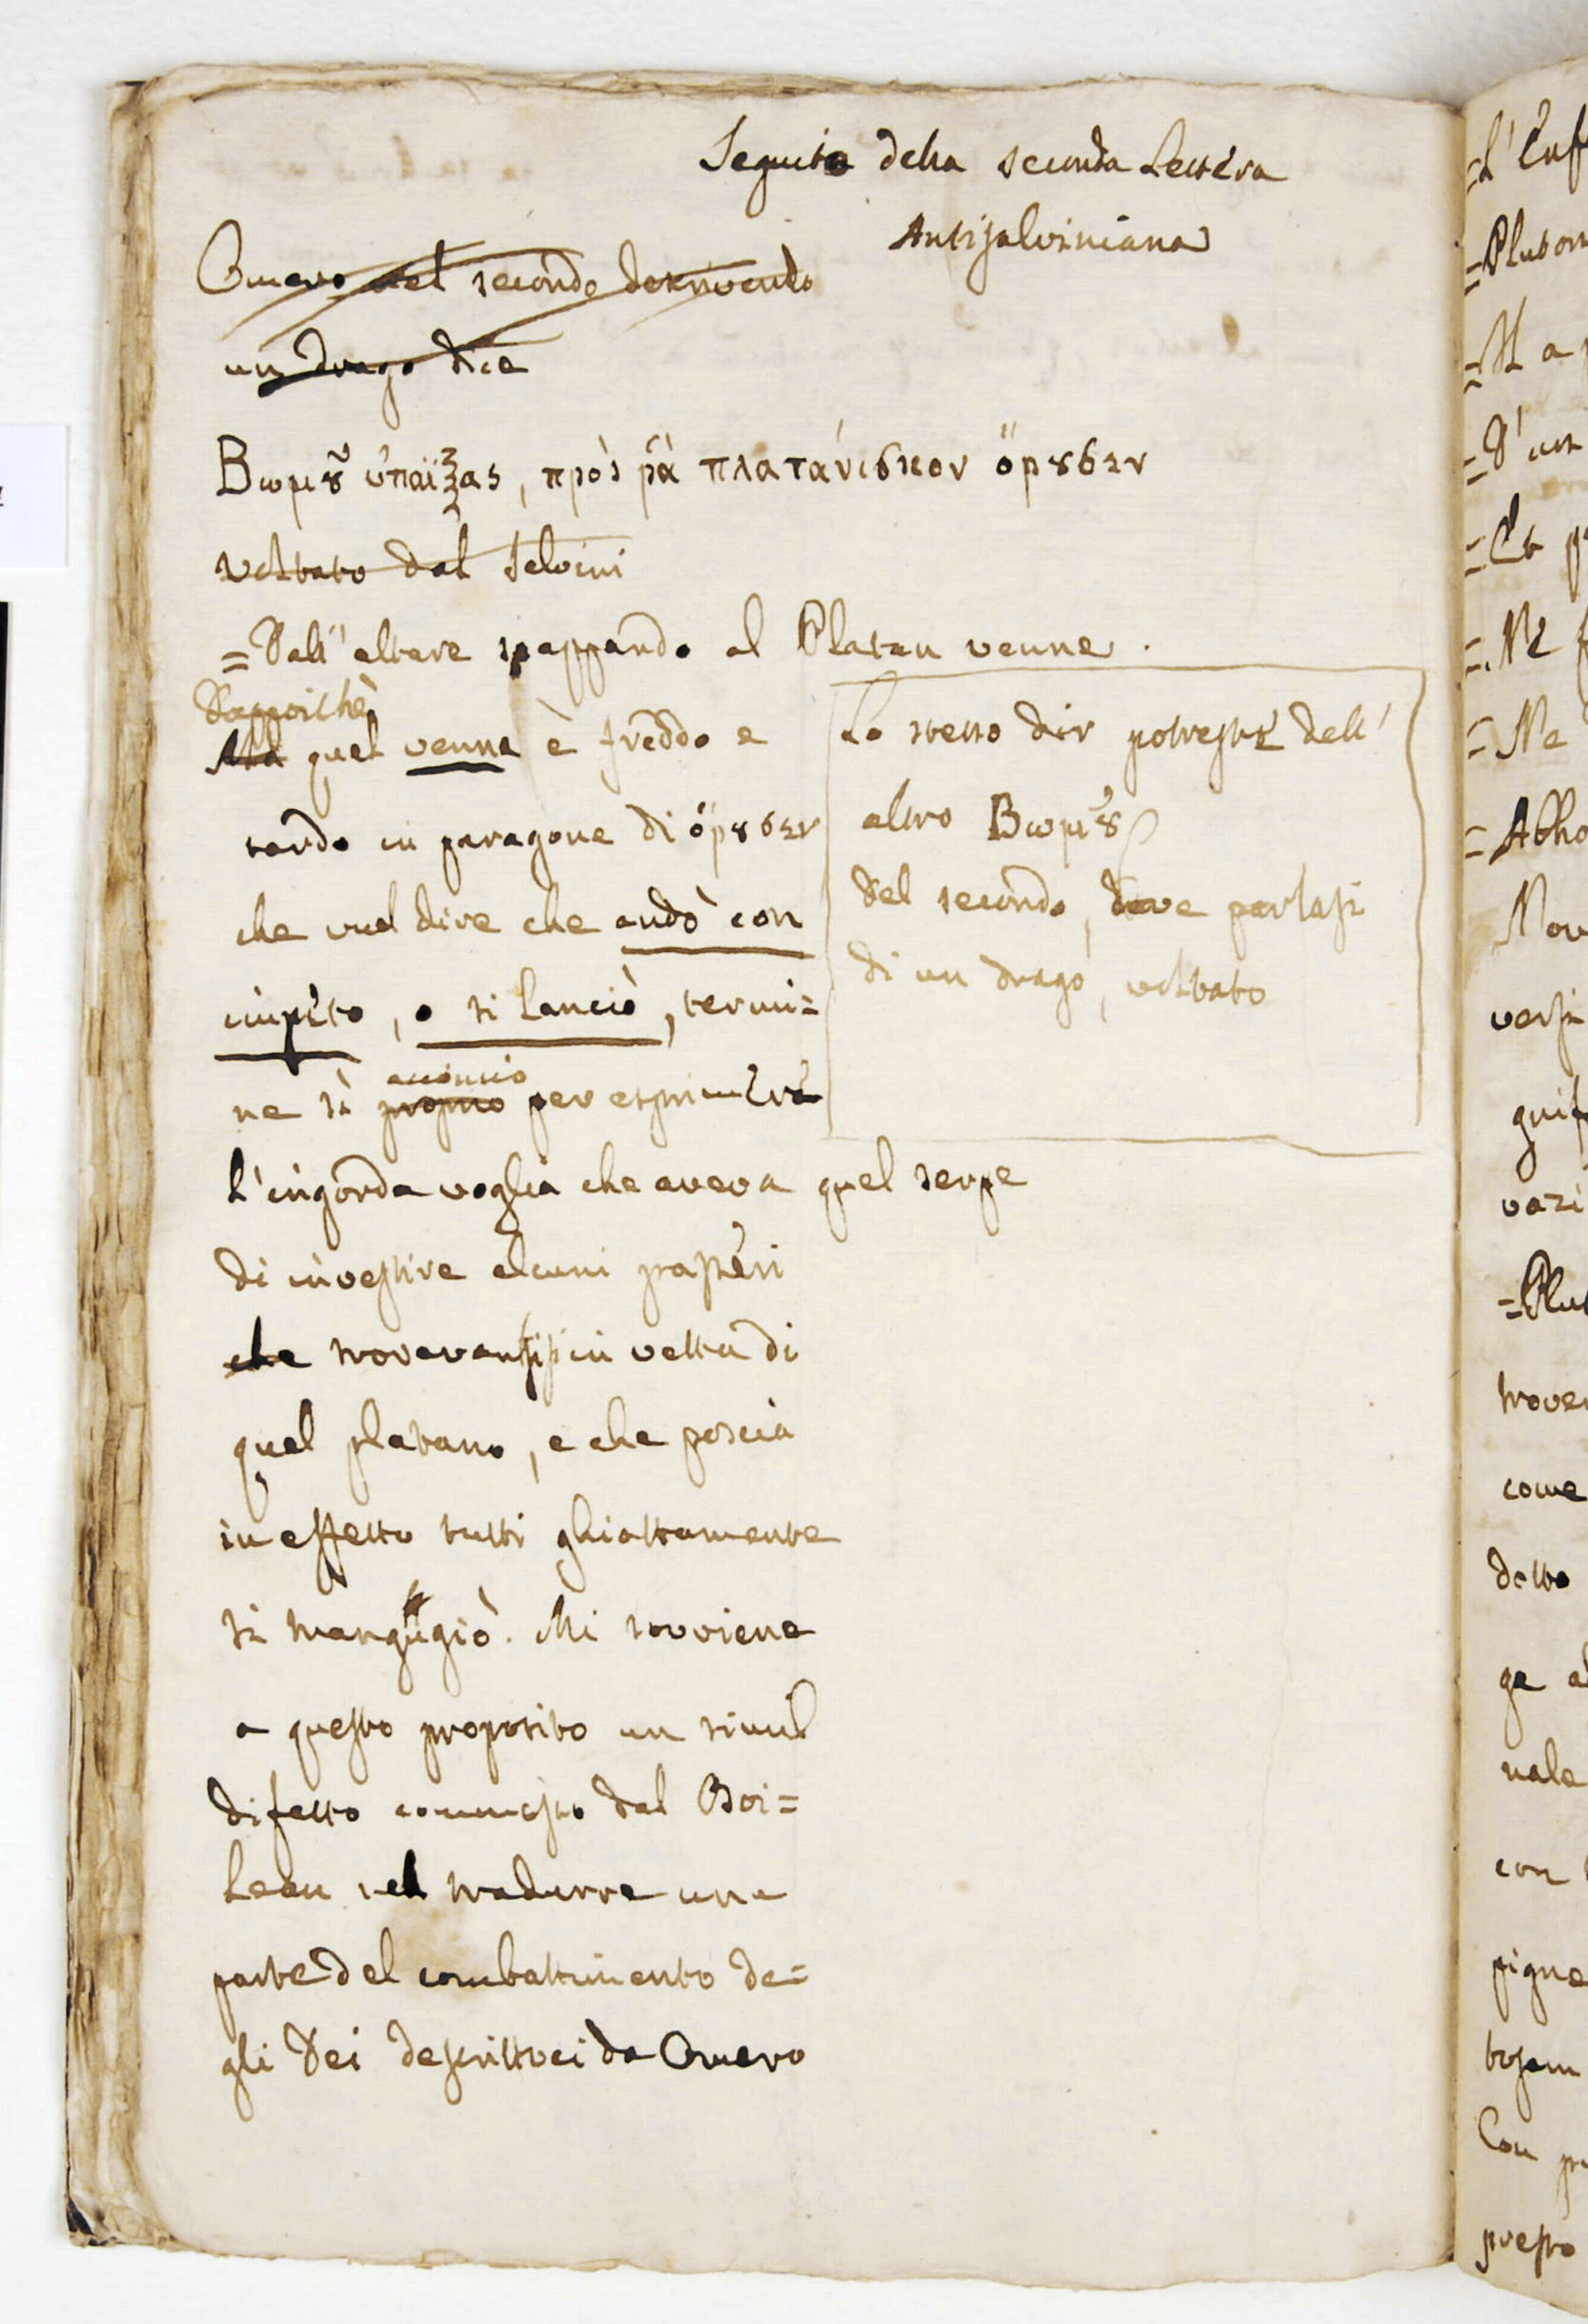 Seguito della seconda Lettera
Antisalviniana
Omero nel secondo descrivendo
un drago dice
Βωμȣ͂ ὑπαΐξας, πρός ῥα πλατάνισκον ὄρȣσεν
voltato dal Salvini
= Dall'altare spappando al Platan venne.
Dappoichè
Ma quel venne è freddo e
tardo in paragone di ὄρȣσεν
che vuol dire che andò con
impeto, o si lanciò, termi=
ne sì
acconcio
proprio per esprimere
l'ingorda voglia che aveva quel serpe
di investire alcuni passeri
che trovavansi in vetta di
quel platano, e che poscia
in effetto tutti ghiottamente
si mangiò. Mi sovviene
a questo proposito un simil
difetto commesso dal Boi=
leau nel tradurre una
parte del combattimento de=
gli Dei descrittoci da Omero
Lo stesso dir potreste dell'
altro Βωμȣ͂
Del secondo, dove parlasi
di un drago, voltato
=L'
=
=
=
=
=Ne
=Ne
=
versi
vazi
come
detto
con
presto